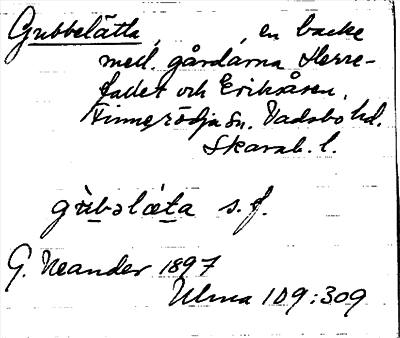 Grubbelätta, , en backe
mell. gårdarna Herre-
fallet och Eriksåsen,
Finnerödja sn. Vadsbo hd.
Skarab. l.
grùbəlæ̀ta s.f.
G. Neander 1897
Ulma 109:309